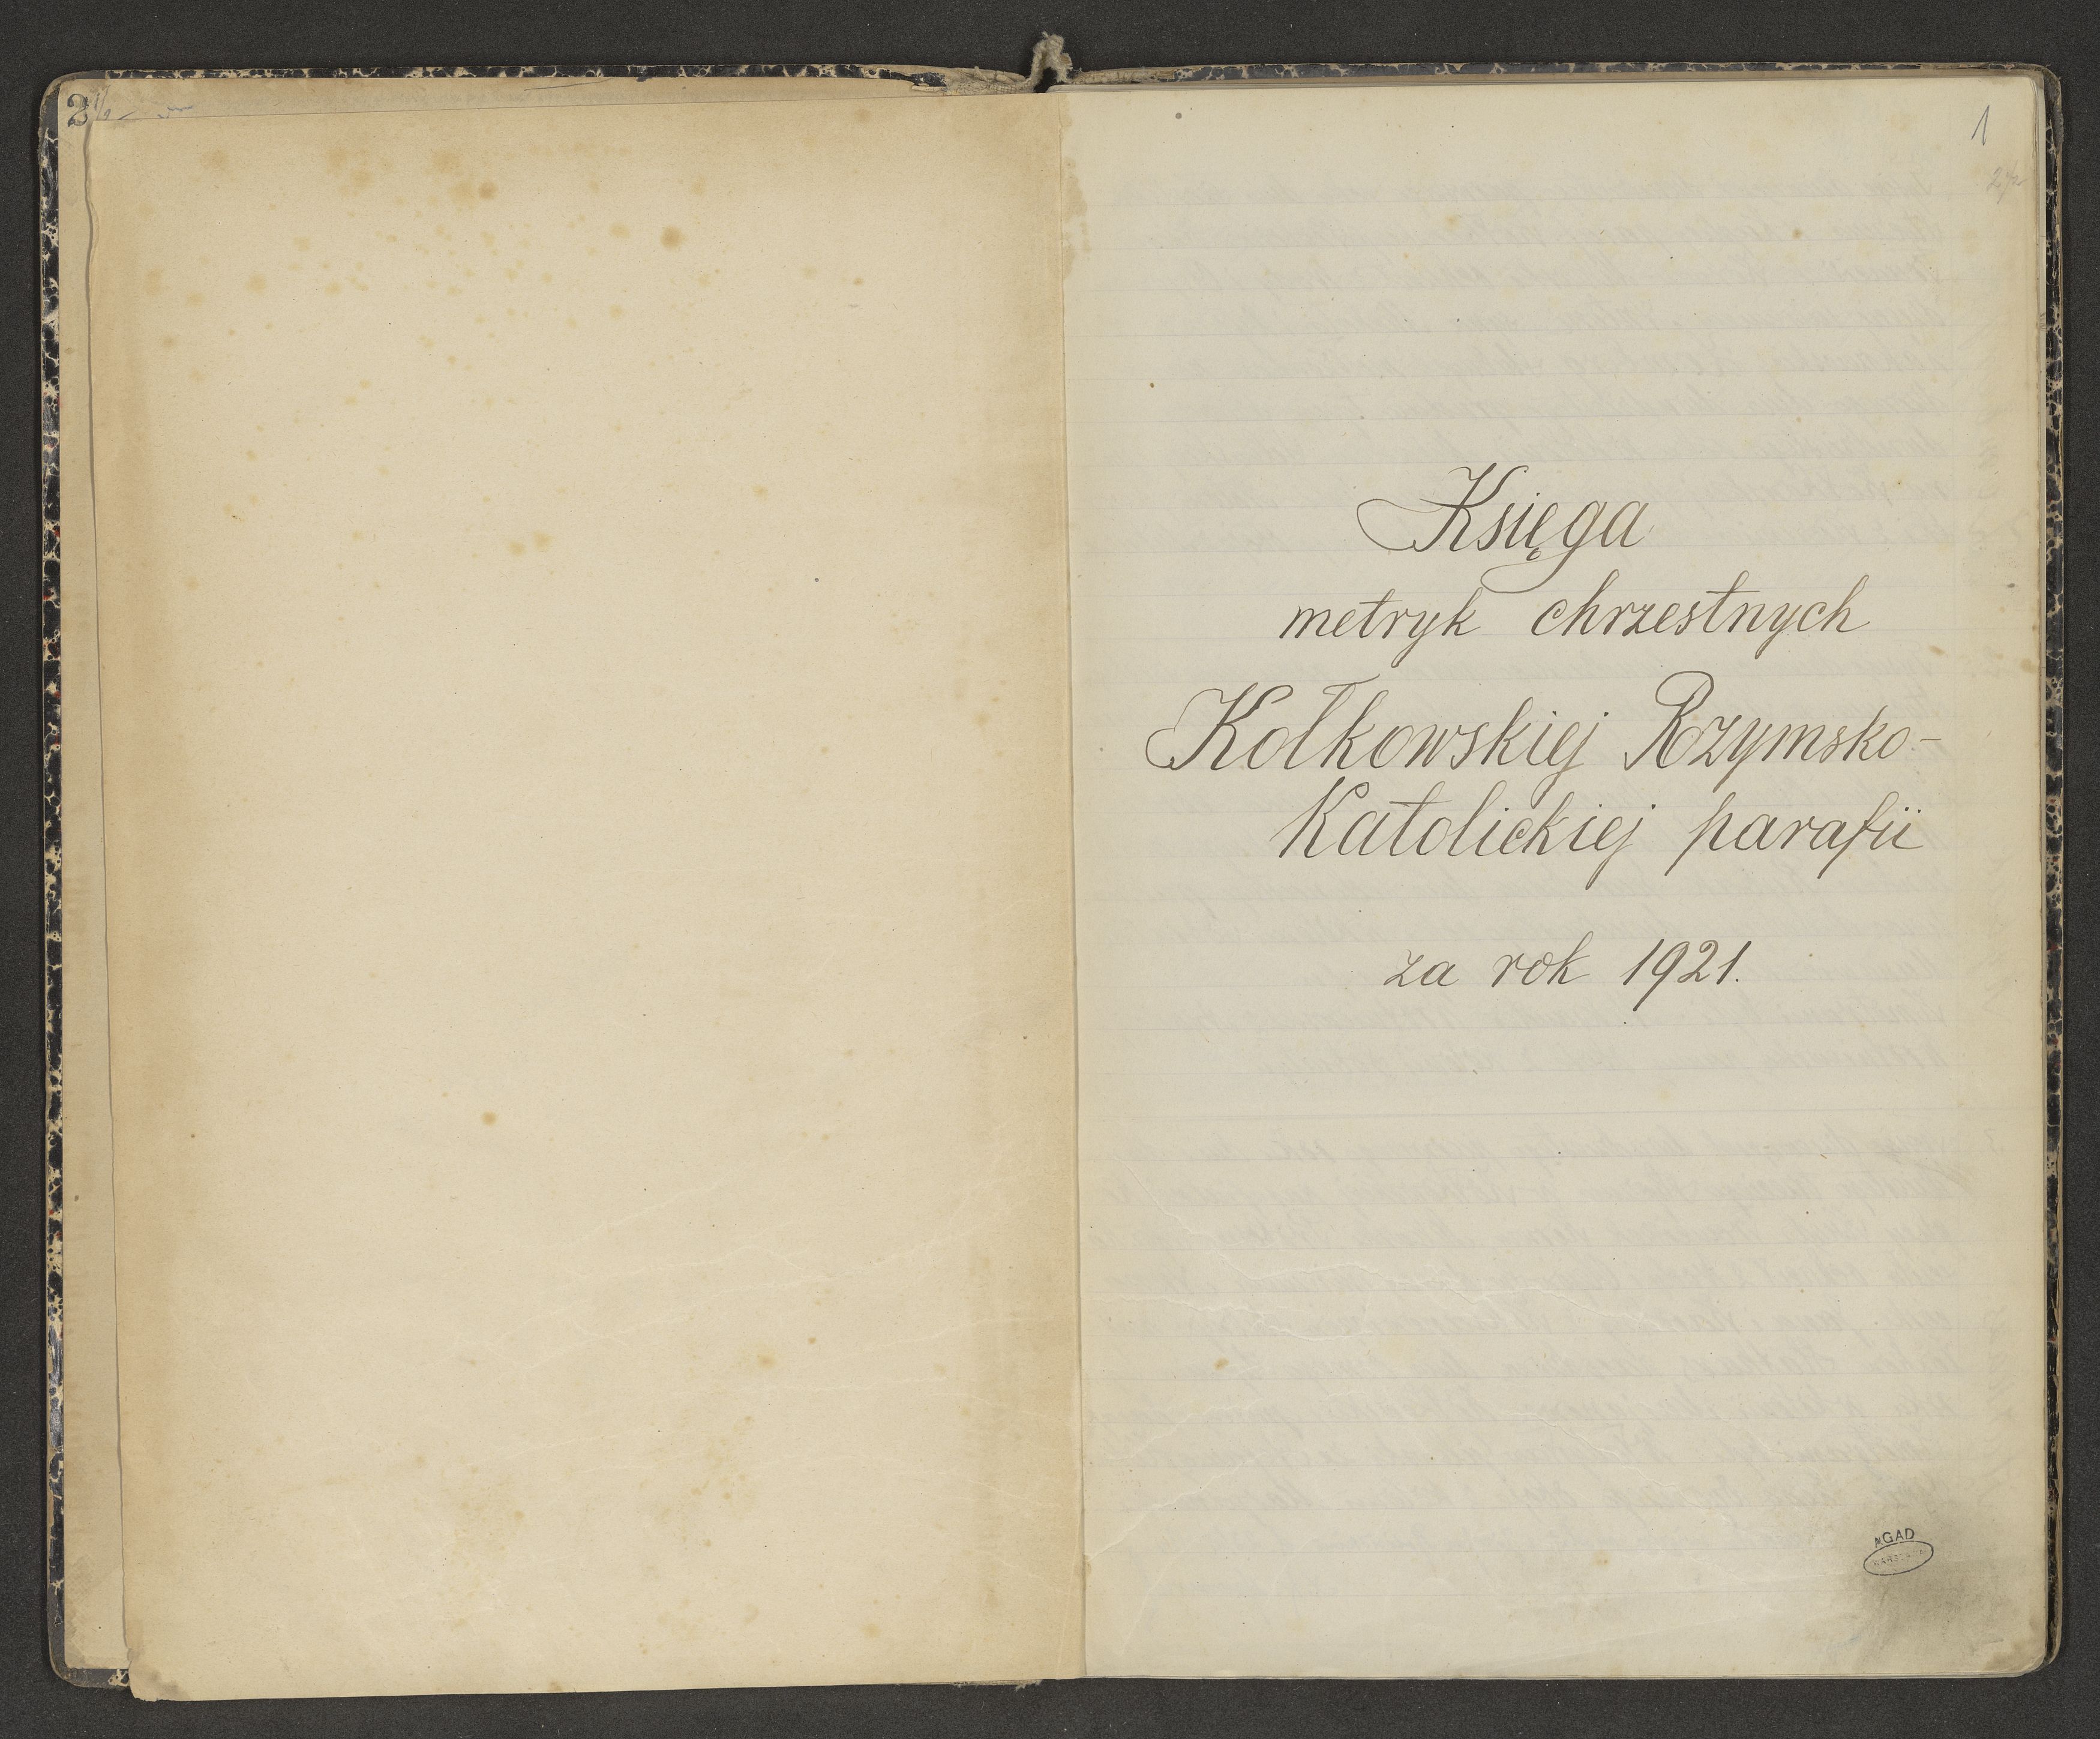 1
Księga
metryk chrzestnych
Kołkowskiej Rzymsko-
Katolickiej parafii
za rok 1921.
AGAD